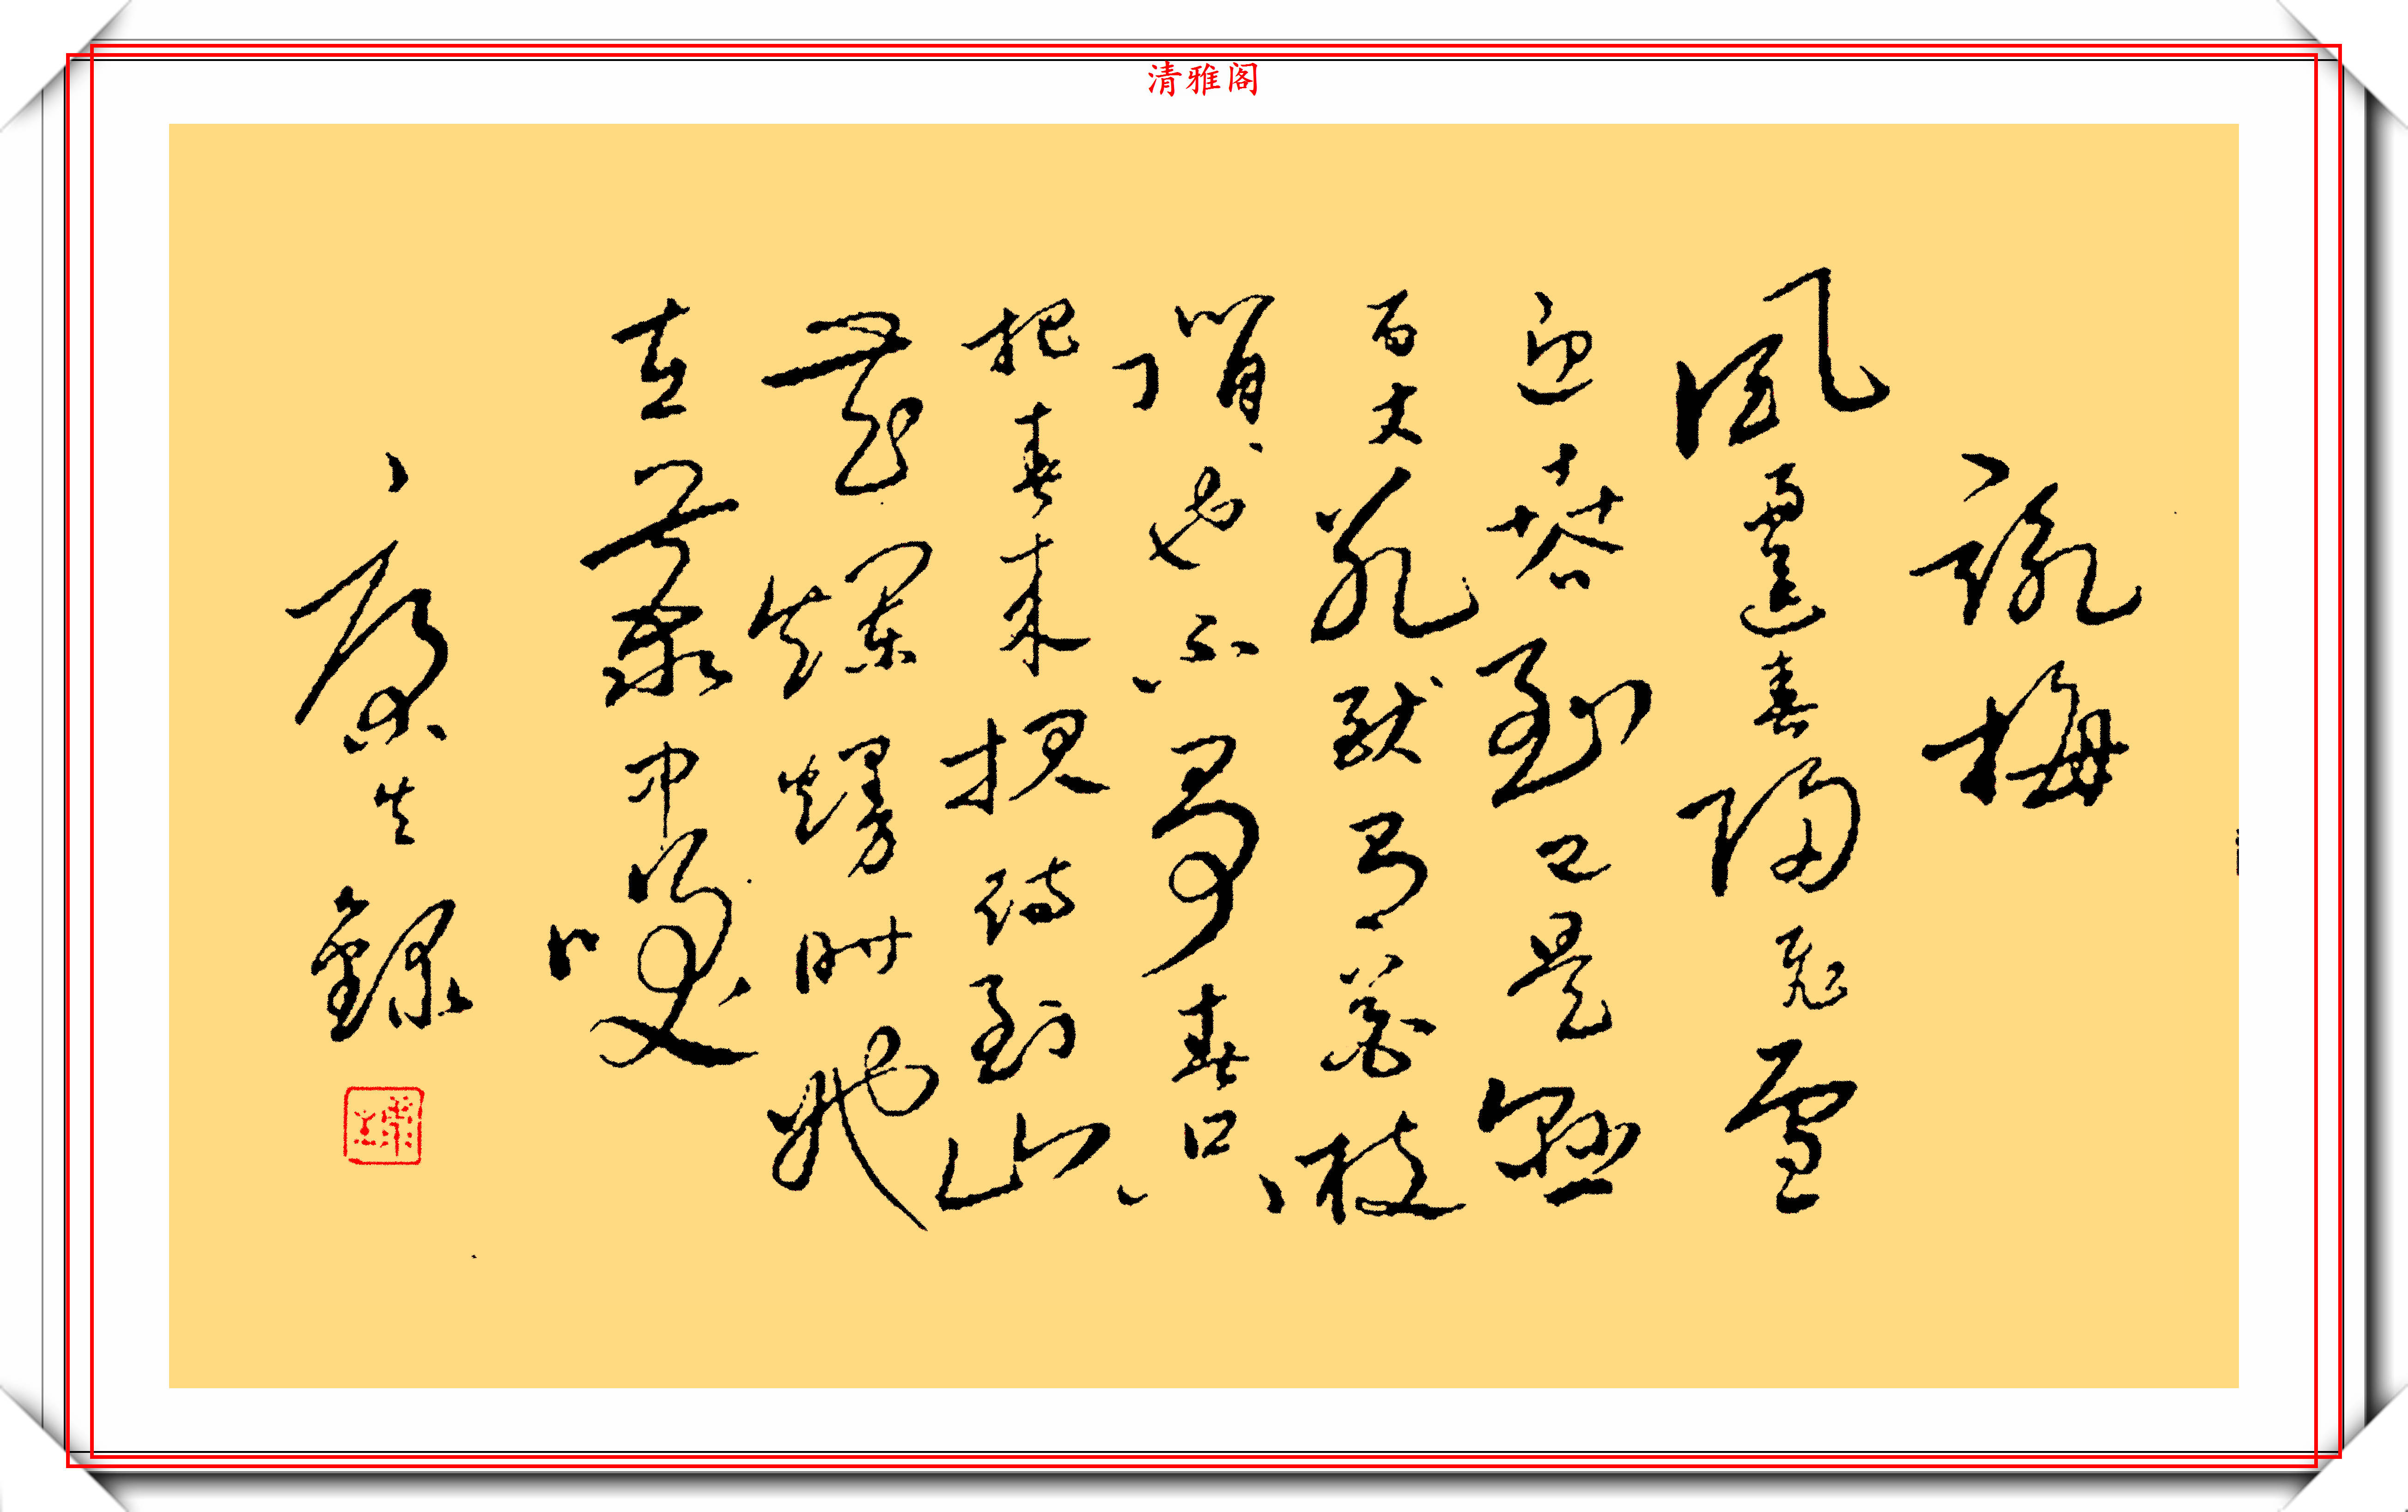 清雅阁
詠梅
風雨送春歸飛雪
迎春到已是懸
百丈冰猶有花枝
俏也不爭春只
把春來報待到山
花爛熳時她
在叢中咲
康生錄